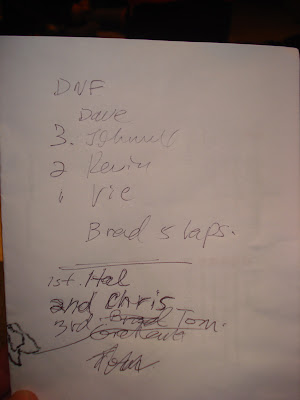 DNF
Dave
3. Johnny
2 Kevin
1 Vic
Brad 5 laps.
1st. Hal
2nd Chris
3rd. Brad Tom.
Graham